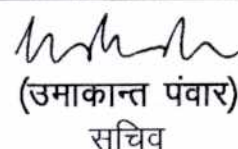 (उमाकान्त पंवार)
सचिव